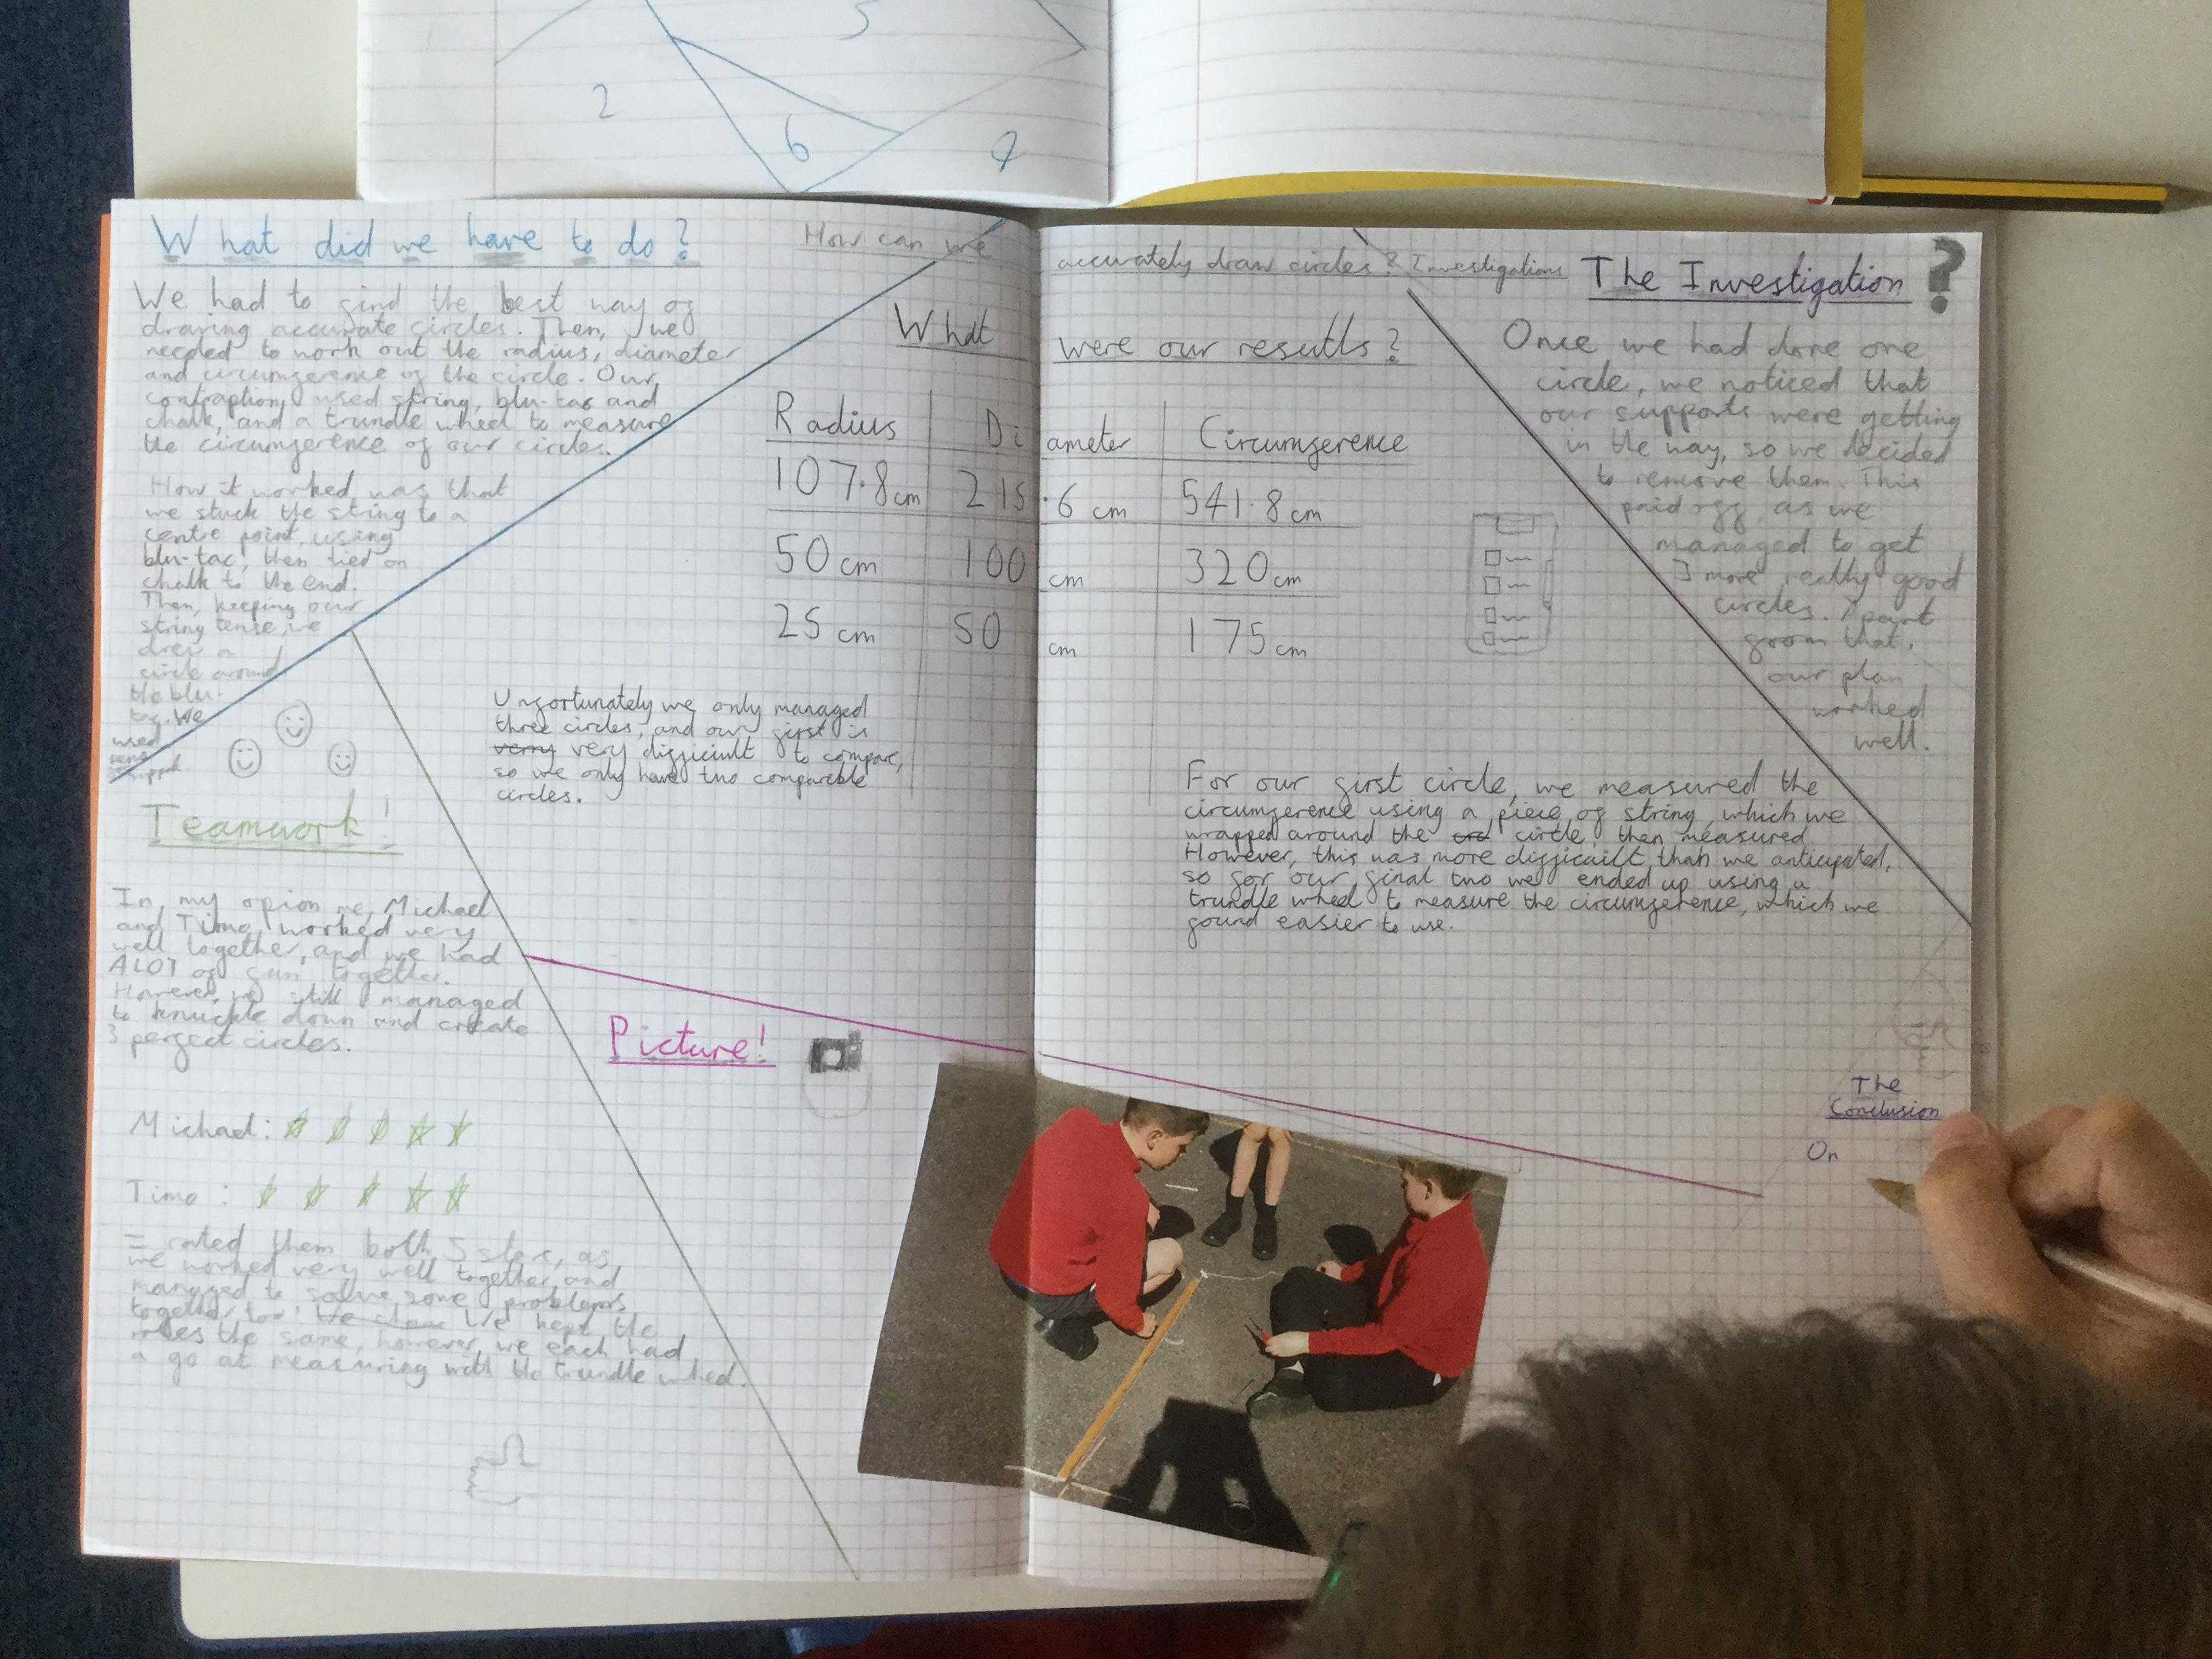 5
2
6
7
What did we have to do?
We had to find the best way of
drawing accurate circles. Then, we
needed to work out the radius, diameter
and circumference of the circle. Our
contraption used string, blu-tac and
chalk, and a trundle wheel to measure
the circumference of our circles.
How it worked was that
we stuck the string to a
centre point, using
blu-tac, then tied on
chalk to the end.
Then, keeping our
string tense, we
drew a
circle around
the blu-
tac. We
used
How can we accurately draw circles? Investigations
What were our results?
Radius Diameter Circumference
107.8cm 215.6 cm 541.8cm
50cm 100 cm 320cm
25cm 50 cm 175cm
Unfortunately we only managed
three circles, and our first is
verry very difficult to compare,
so we only have two comparable
circles.
For our first circle, we measured the
circumference using a piece of string, which we
wrapped around the circle, then measured.
However, this was more difficailt than we anticipated,
so for our final two we ended up using a
trundle wheel to measure the circumference, which we
found easier to use.
The Investigation ?
Once we had done one
circle, we noticed that
our supports were getting
in the way, so we decided
to remove them. This
paid off, as we
managed to get
3 more really good
circles. Apart
from that,
our plan
worked
well.
Teamwork!
In my opion me, Michael
and Timo worked very
well together, and we had
ALOT of fun together.
However, we still managed
to knuckle down and create
3 perfect circles.
Michael:
Timo :
I rated them both 5 stars, as
we worked very well together, and
managed to solve some problems
together too! We kept the
roles the same, however, we each had
a go at measuring with the trundle wheel.
Picture!
The
Conclusion
On